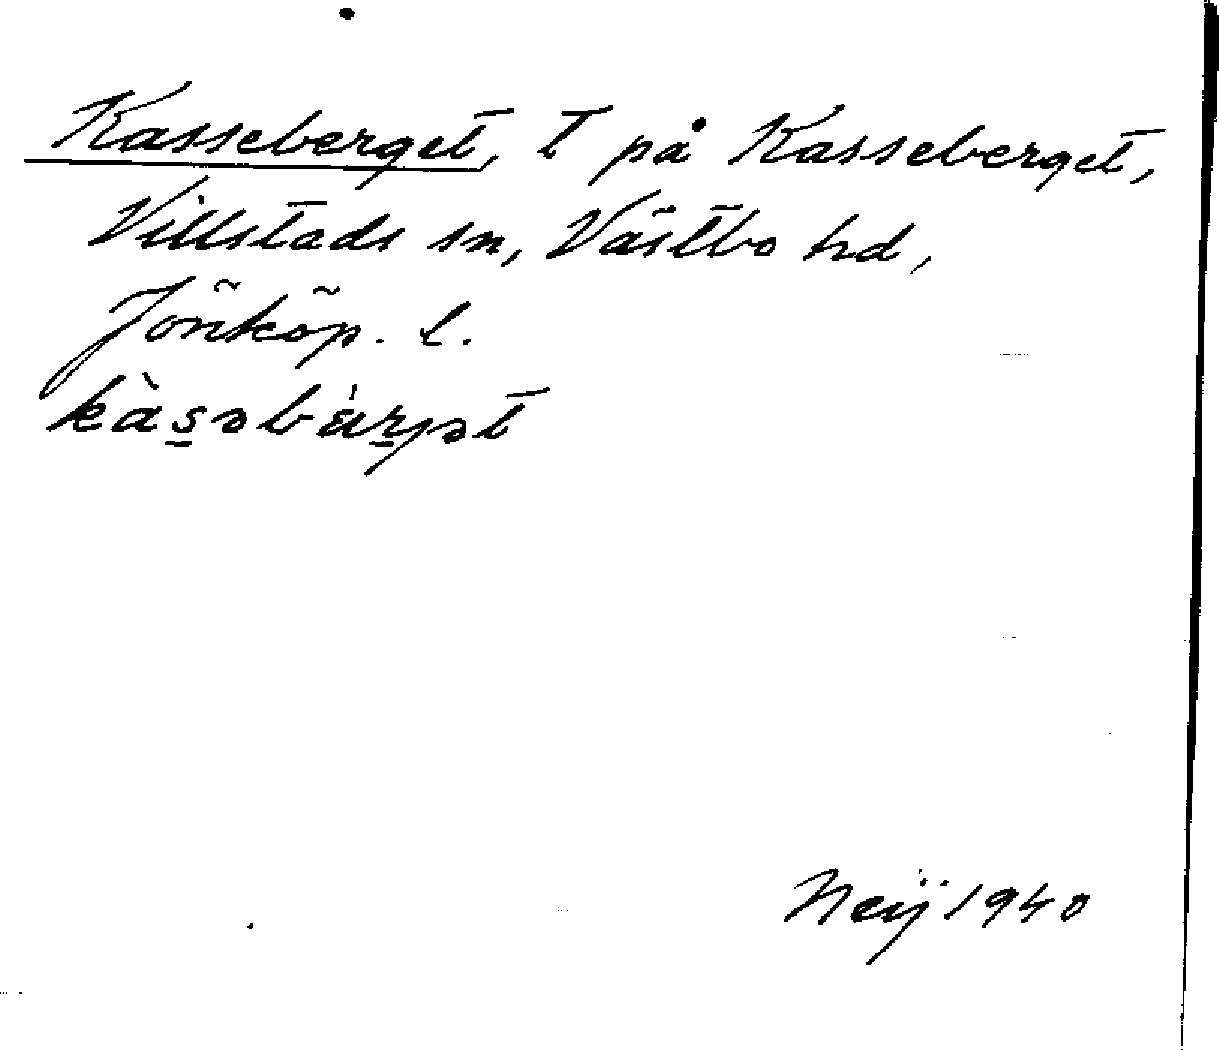 Kasseberget, T på Kasseberget,
Villstads sn, Västbo hd,
Jönköp. l.
kàs̲əbá̈r̲jət
Neij 1940